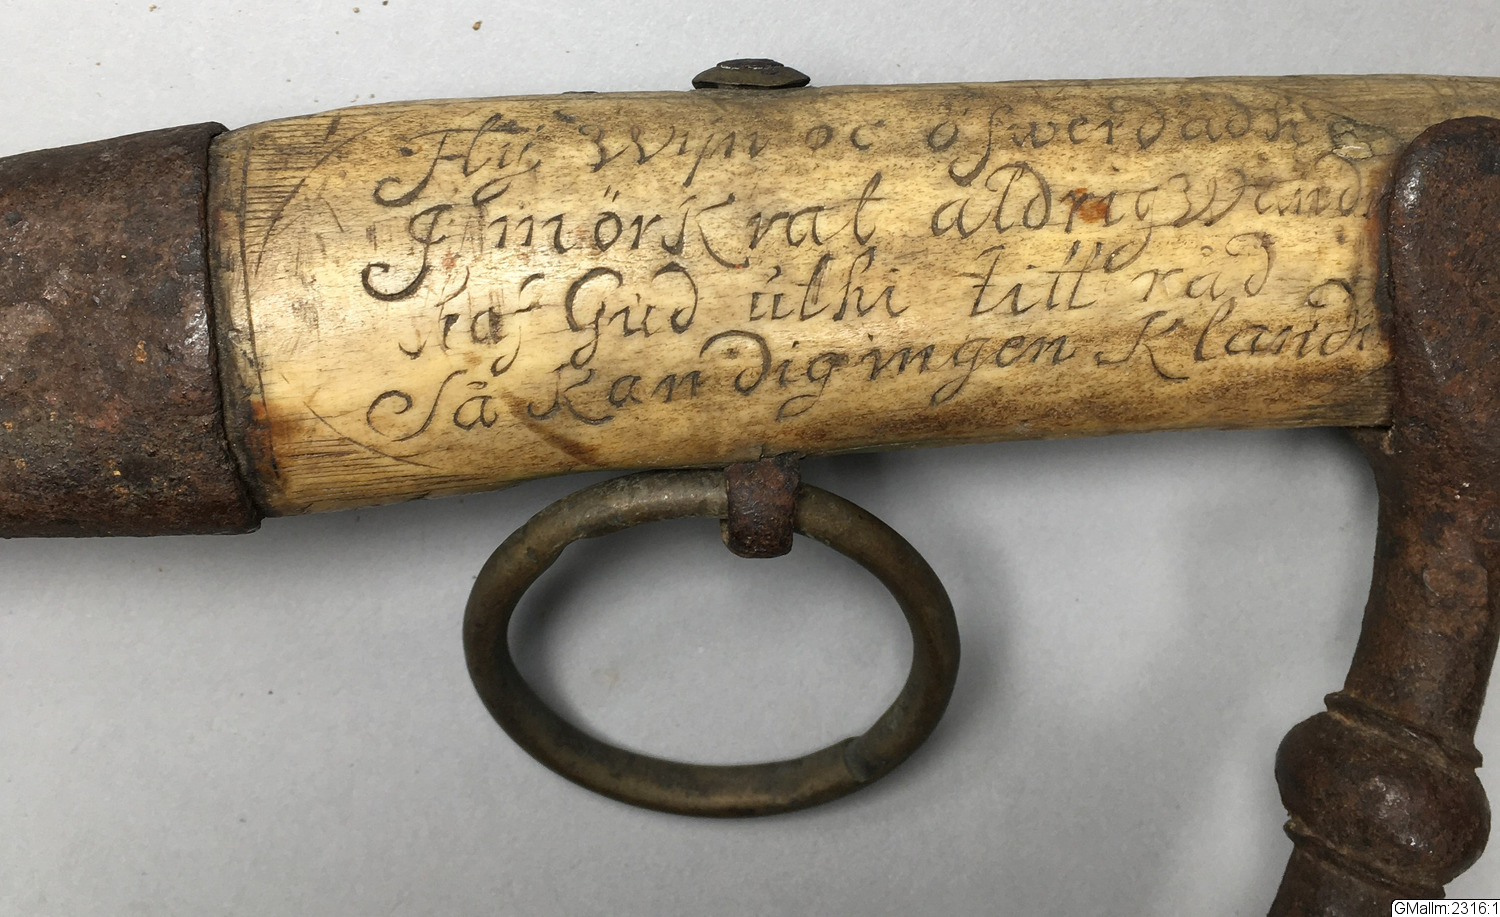 Flÿ wijn oc öfwerdådh
I mörkrat aldrig wand
haf Gud uthi titt råd
Så kan dig ingen Kland
GMallm:2316:1